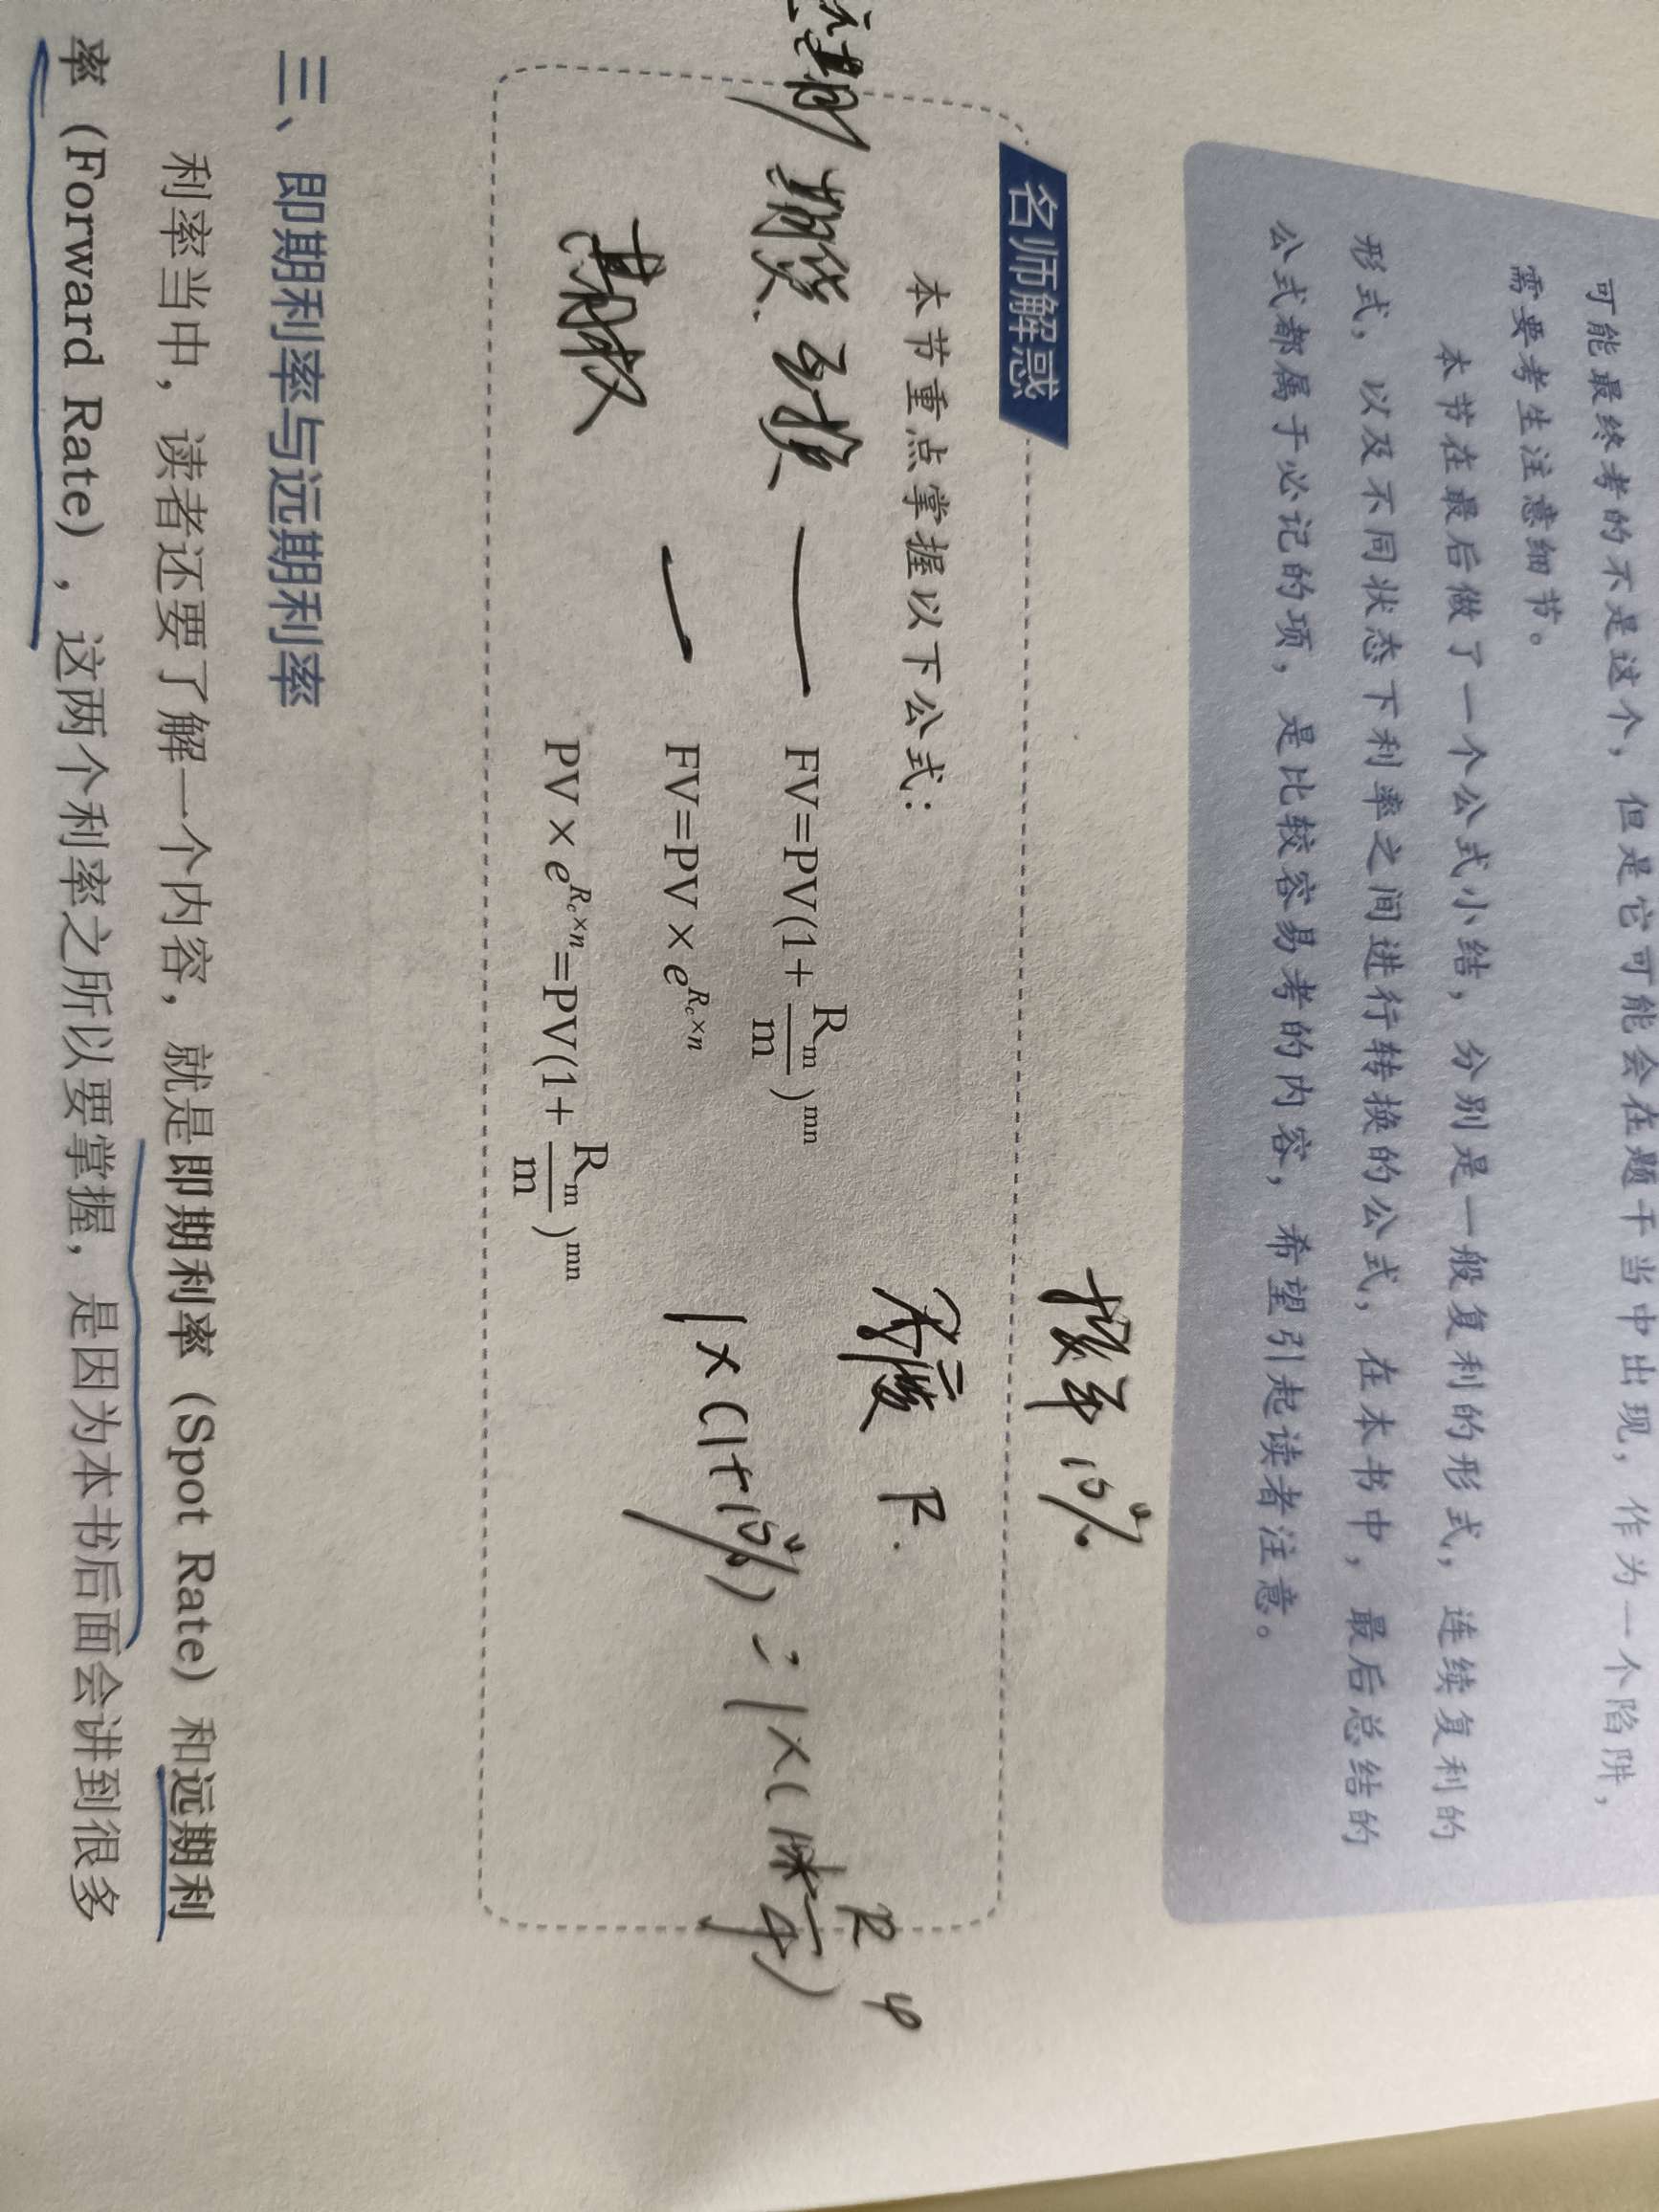 可能最终考的不是这个，但是它可能会在题干当中出现，作为一个陷阱，
需要考生注意细节。
本节在最后做了一个公式小结，分别是一般复利的形式，连续复利的
形式，以及不同状态下利率之间进行转换的公式，在本书中，最后总结的
公式都属于必记的项，是比较容易考的内容，希望引起读者注意。
按年 10%
名师解惑
本节重点掌握以下公式：
季度 R.
期货 互换 — FV=PV(1+R_m/m)^mn
1×(1+10%) = 1×(1+R/4)^4
— FV=PV×e^(R_c×n)
期权
PV×e^(R_c×n)=PV(1+R_m/m)^mn
三、即期利率与远期利率
利率当中，读者还要了解一个内容，就是即期利率（Spot Rate）和远期利
率（Forward Rate），这两个利率之所以要掌握，是因为本书后面会讲到很多